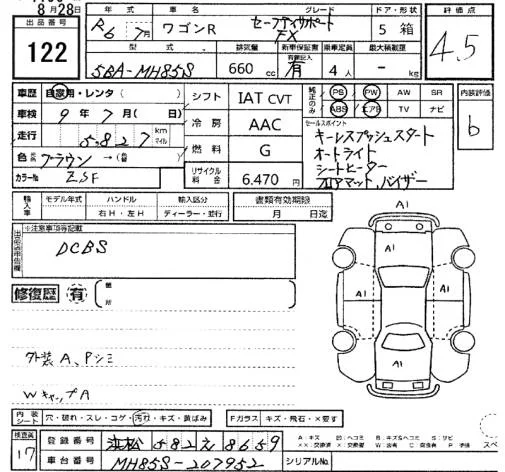 8月28日
出品番号 122
年式 R6 7月
車名 ワゴンR
グレード セーフティサポート FX
ドア・形状 5 箱
評価点 4.5
型式 5BA-MH85S
排気量 660 cc
新車保証書 有
乗車定員 4 人
最大積載量 - kg
車歴 自家用・レンタ( )
車検 9年7月( 日)
走行 5,827 km マイル
色 ブラウン →( )
カラーNo. ZSF
シフト IAT CVT
冷房 AAC
燃料 G
リサイクル料金 6,470円
純正のみ PS PW AW SR
ABS エアB TV ナビ
セールスポイント
キーレスプッシュスタート
オートライト
シートヒーター
フロアマット、バイザー
内装評価 b
輸入車 モデル年式 年
ハンドル 右H・左H
輸入区分 ディーラー・並行
書類有効期限 月 日迄
※注意事項等記載
DCBS
修復歴 有 箇所
外装A、Pシミ
WキャップA
A1
A1
A1
A1
A1
内装シート 穴・破れ・スレ・コゲ・汚れ・キズ・黄ばみ
Fガラス キズ・飛石・×要す
検査員 17
登録番号 浜松 582 え 8659
車台番号 MH85S-207952
シリアルNo.
A キズ